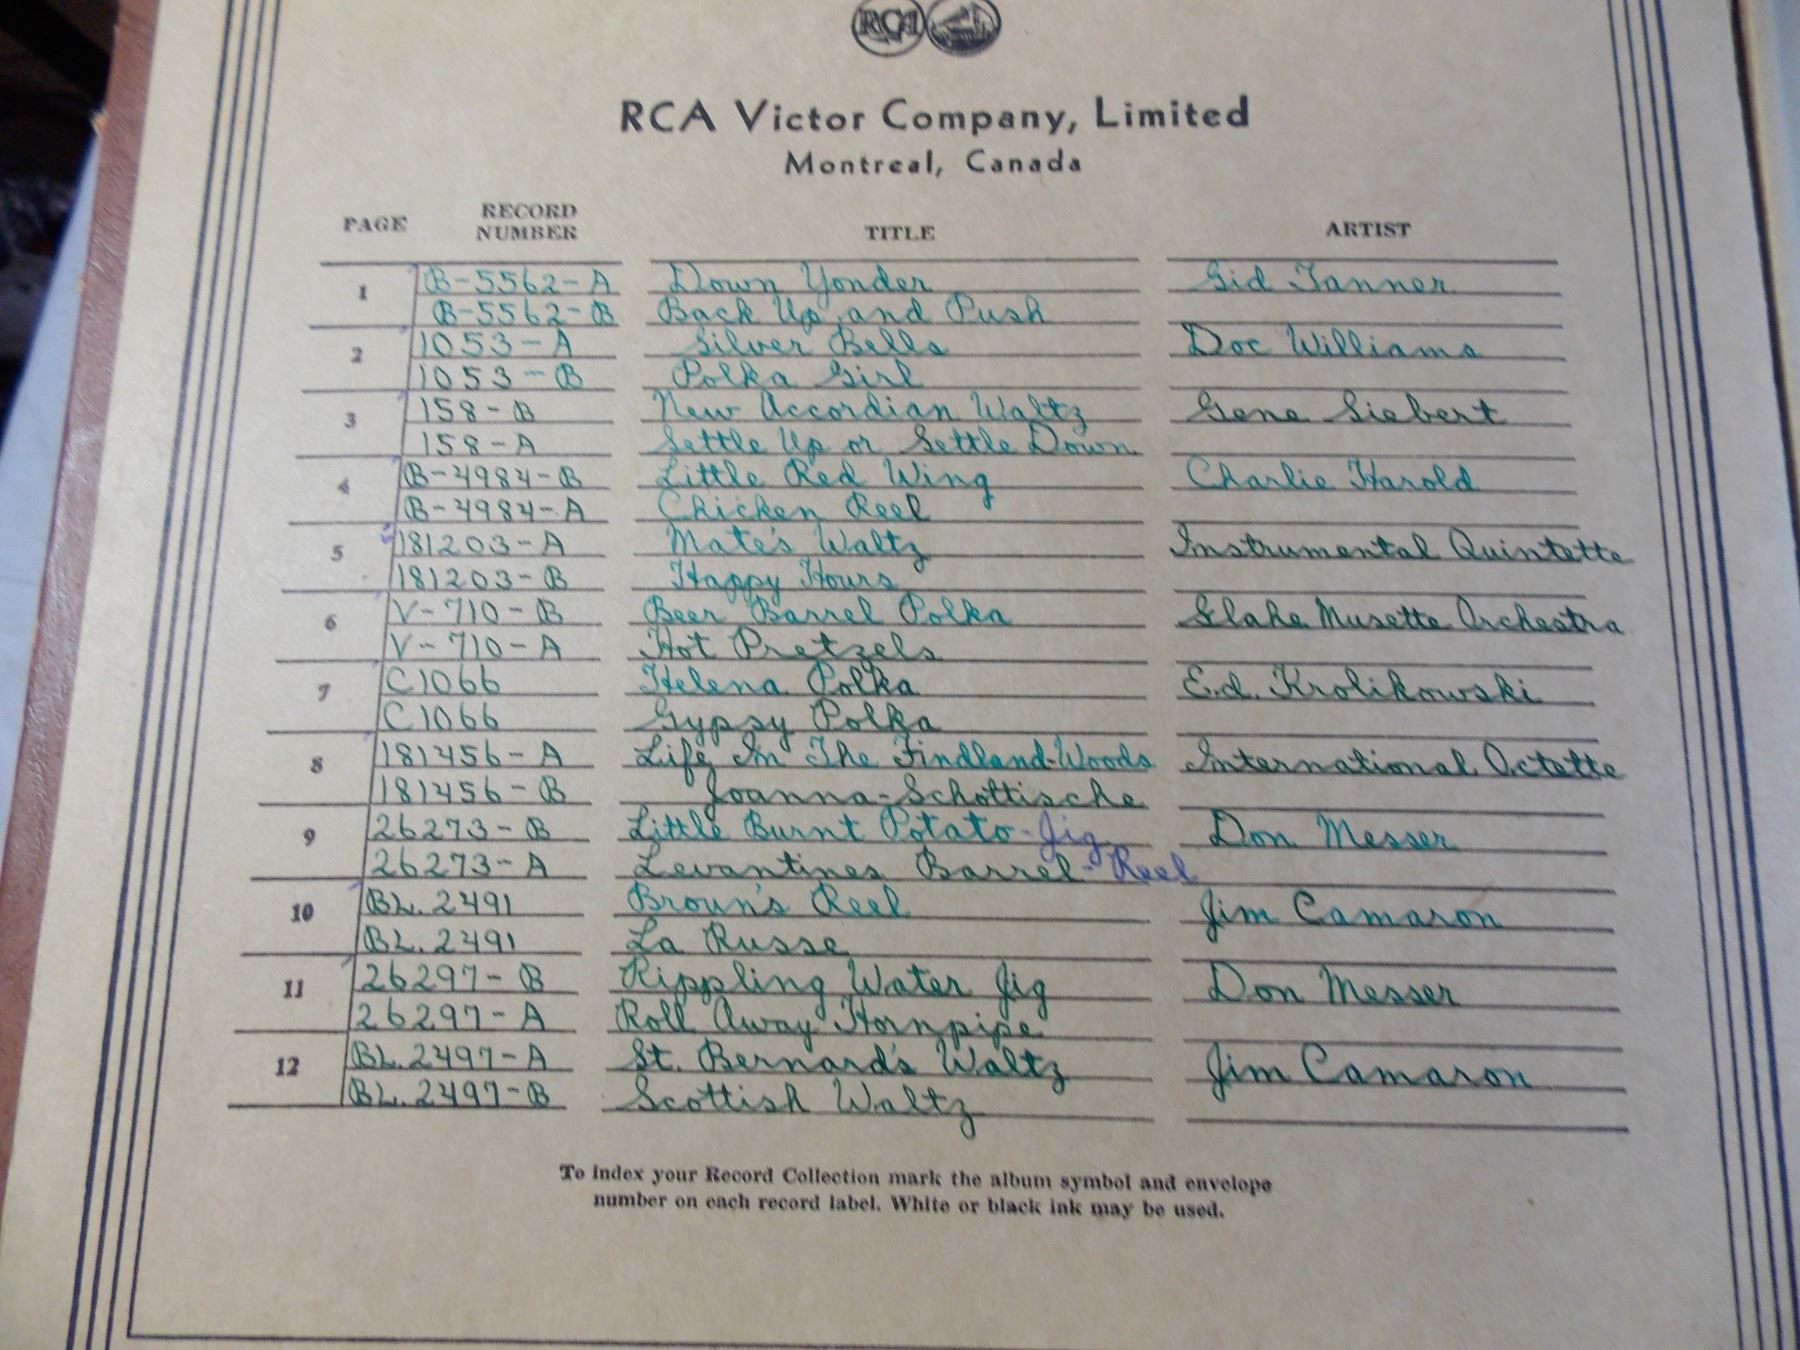 RCA
RCA Victor Company, Limited
Montreal, Canada
PAGE RECORD NUMBER TITLE ARTIST
1 B-5562-A Down Yonder Gid Tanner
B-5562-B Back Up and Push
2 1053-A Silver Bells Doc Williams
1053-B Polka Girl
3 158-B New Accordian Waltz Gene Siebert
158-A Settle Up or Settle Down
4 B-4984-B Little Red Wing Charlie Harold
B-4984-A Chicken Reel
5 181203-A Mate's Waltz Instrumental Quintette
181203-B Happy Hours
6 V-710-B Beer Barrel Polka Glahe Musette Orchestra
V-710-A Hot Pretzels
7 C1066 Helena Polka Ed. Krolikowski
C1066 Gypsy Polka
8 181456-A Life In The Findland-Woods International Octette
181456-B Joanna-Schottische
9 26273-B Little Burnt Potato-Jig Don Messer
26273-A Levantines Barrel-Reel
10 BL.2491 Broun's Reel Jim Camaron
BL.2491 La Russe
11 26297-B Rippling Water Jig Don Messer
26297-A Roll Away Hornpipe
12 BL.2497-A St. Bernard's Waltz Jim Camaron
BL.2497-B Scottish Waltz
To index your Record Collection mark the album symbol and envelope
number on each record label. White or black ink may be used.